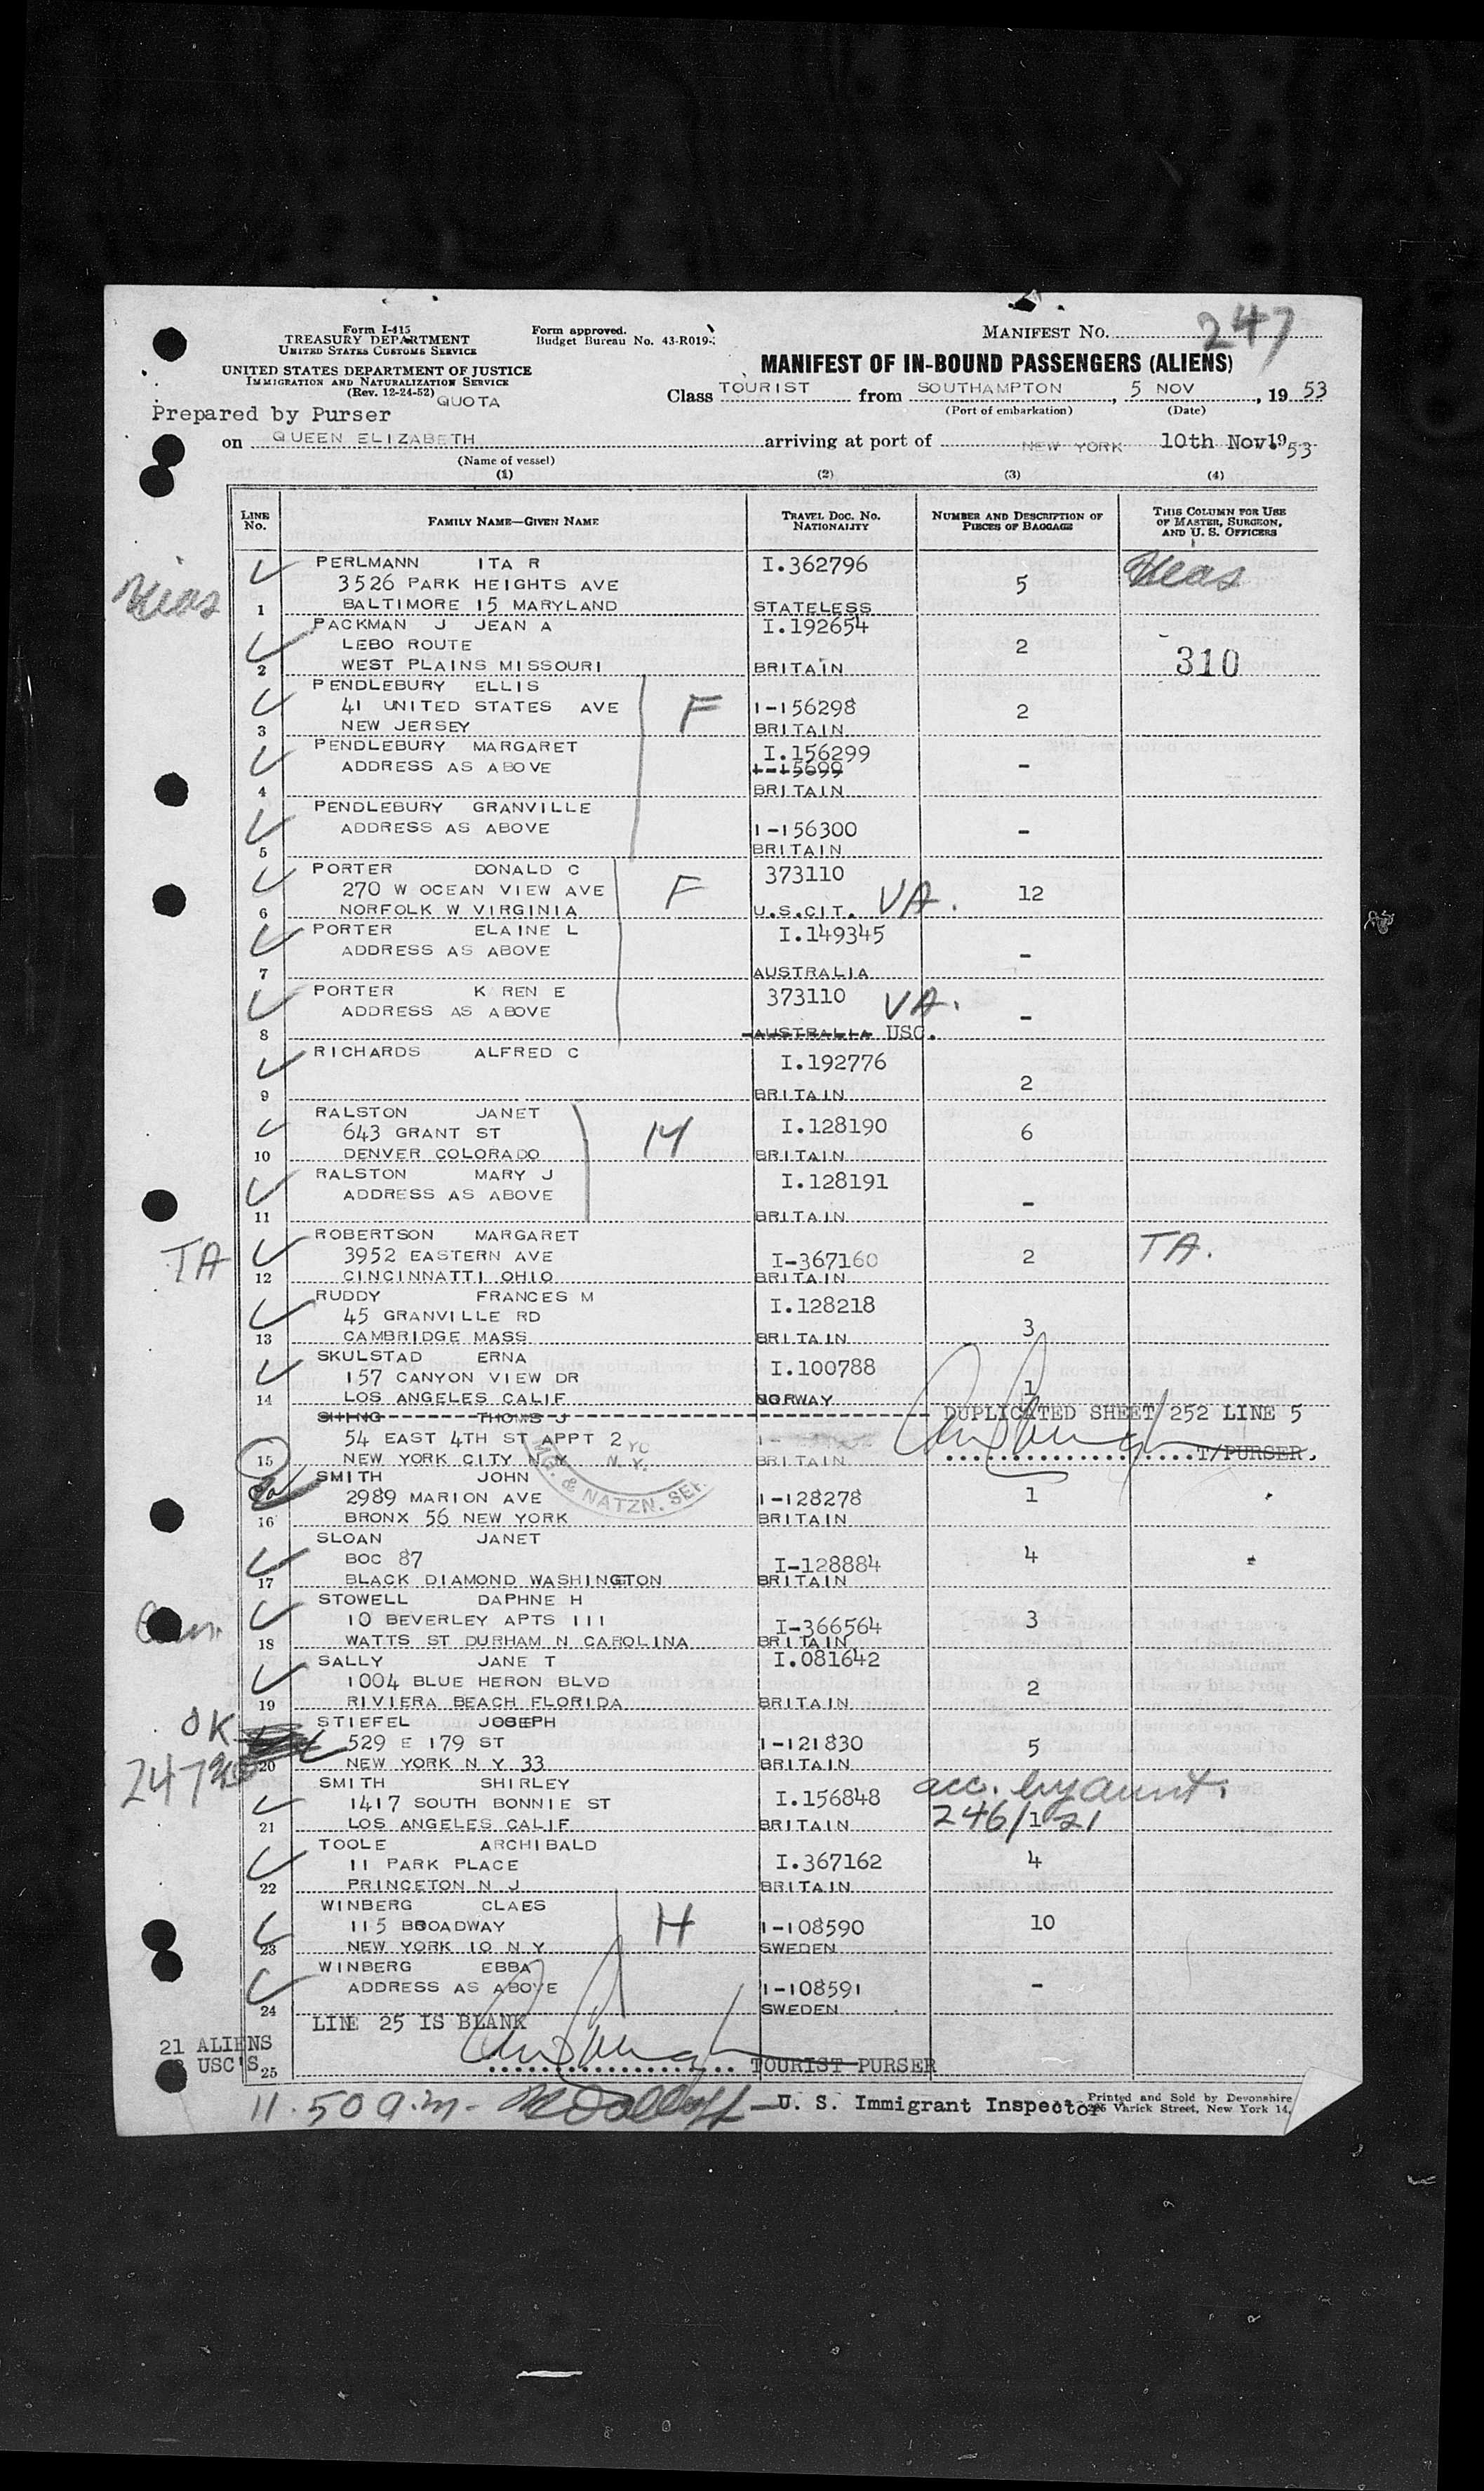 Form I-415
TREASURY DEPARTMENT
UNITED STATES CUSTOMS SERVICE
UNITED STATES DEPARTMENT OF JUSTICE
IMMIGRATION AND NATURALIZATION SERVICE
(Rev. 12-24-52)
QUOTA
Prepared by Purser
Form approved.
Budget Bureau No. 43-R019-
MANIFEST NO. 247
MANIFEST OF IN-BOUND PASSENGERS (ALIENS)
Class TOURIST from SOUTHAMPTON, 5 NOV, 1953
(Port of embarkation) (Date)
on QUEEN ELIZABETH arriving at port of NEW YORK 10th Nov. 1953
(Name of vessel)
(1) (2) (3) (4)
LINE No. FAMILY NAME—GIVEN NAME TRAVEL DOC. NO. NATIONALITY NUMBER AND DESCRIPTION OF PIECES OF BAGGAGE THIS COLUMN FOR USE OF MASTER, SURGEON, AND U. S. OFFICERS
PERLMANN ITA R I.362796
Hias 3526 PARK HEIGHTS AVE 5 Hias
1 BALTIMORE 15 MARYLAND STATELESS
PACKMAN J JEAN A I.192654
LEBO ROUTE 2
2 WEST PLAINS MISSOURI BRITAIN 310
PENDLEBURY ELLIS
41 UNITED STATES AVE F I-156298 2
3 NEW JERSEY BRITAIN
PENDLEBURY MARGARET I.156299
ADDRESS AS ABOVE I-15699 -
4 BRITAIN
PENDLEBURY GRANVILLE
ADDRESS AS ABOVE I-156300 -
5 BRITAIN
PORTER DONALD C 373110
270 W OCEAN VIEW AVE F 12
6 NORFOLK W VIRGINIA U.S.CIT. VA.
PORTER ELAINE L I.149345
ADDRESS AS ABOVE -
7 AUSTRALIA
PORTER K REN E 373110 VA.
ADDRESS AS ABOVE -
8 AUSTRALIA USC.
RICHARDS ALFRED C I.192776
2
9 BRITAIN
RALSTON JANET I.128190
643 GRANT ST M 6
10 DENVER COLORADO BRITAIN
RALSTON MARY J I.128191
ADDRESS AS ABOVE -
11 BRITAIN
ROBERTSON MARGARET
TA 3952 EASTERN AVE I-367160 2 TA.
12 CINCINNATTI OHIO BRITAIN
RUDDY FRANCES M I.128218
45 GRANVILLE RD 3
13 CAMBRIDGE MASS BRITAIN
SKULSTAD ERNA I.100788
157 CANYON VIEW DR 1
14 LOS ANGELES CALIF NORWAY
THOMS J DUPLICATED SHEET 252 LINE 5
54 EAST 4TH ST APPT 2
15 NEW YORK CITY N Y BRITAIN T/PURSER.
& NATZN. SER
N. Y.
SMITH JOHN
2989 MARION AVE I-128278 1
16 BRONX 56 NEW YORK BRITAIN
SLOAN JANET
BOC 87 I-128884 4
17 BLACK DIAMOND WASHINGTON BRITAIN
STOWELL DAPHNE H
10 BEVERLEY APTS 111 I-366564 3
18 WATTS ST DURHAM N CAROLINA BRITAIN
SALLY JANE T I.081642
1004 BLUE HERON BLVD 2
19 RIVIERA BEACH FLORIDA BRITAIN
OK STIEFEL JOSEPH
529 E 179 ST I-121830 5
20 NEW YORK N Y 33 BRITAIN
247
SMITH SHIRLEY acc. by aunt.
1417 SOUTH BONNIE ST I.156848 246/21
21 LOS ANGELES CALIF BRITAIN 1
TOOLE ARCHIBALD
11 PARK PLACE I.367162 4
22 PRINCETON N J BRITAIN
WINBERG CLAES
115 BROADWAY H I-108590 10
23 NEW YORK 10 N Y SWEDEN
WINBERG EBBA
ADDRESS AS ABOVE I-108591 -
24 SWEDEN
LINE 25 IS BLANK
21 ALIENS
USC'S 25 TOURIST PURSER
11.50 a.m. U. S. Immigrant Inspector
Printed and Sold by Devonshire
Varick Street, New York 14,